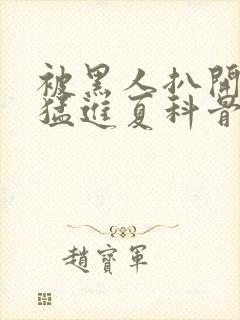 被黑人扒開
猛進夏科骨
趙寶軍